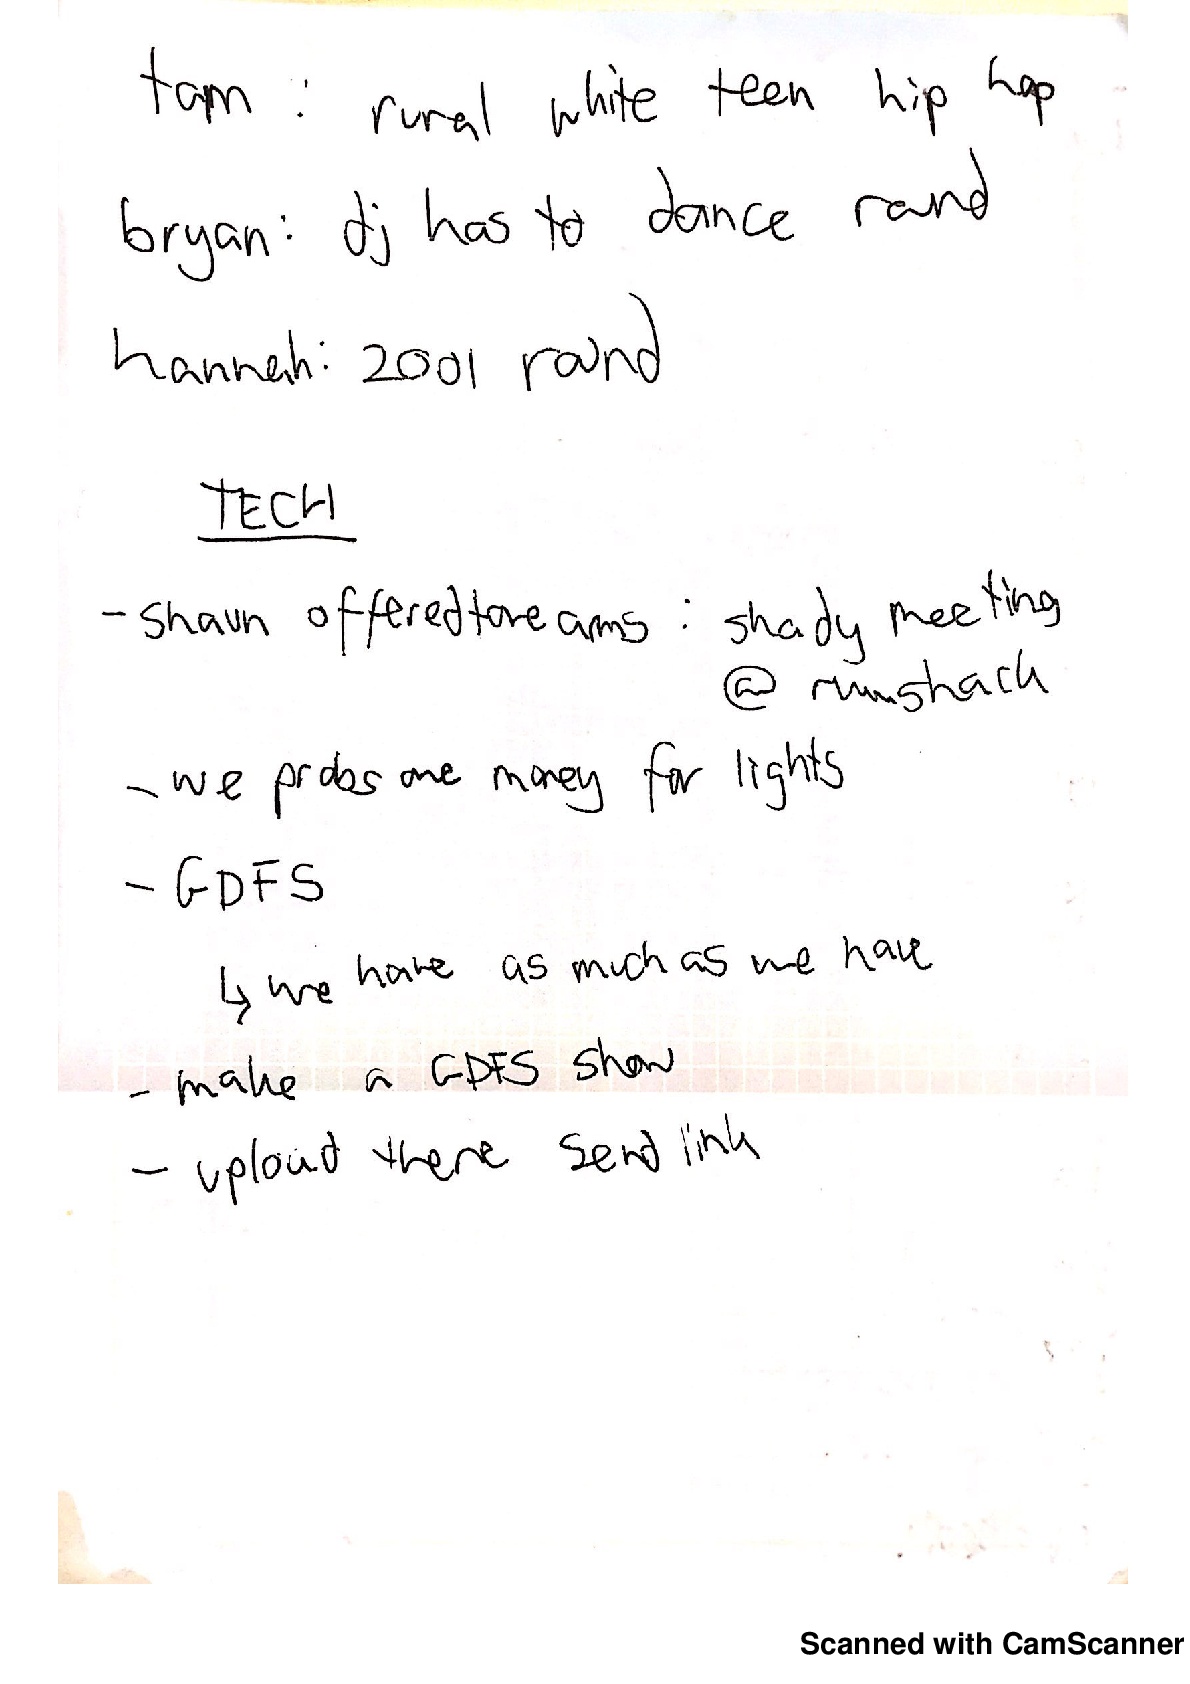 tam : rural white teen hip hop
bryan: dj has to dance round
hannah: 2001 round
TECH
- shaun offered : shady meeting
@ rumshack
- we probs owe money for lights
- GDFS
↳ we have as much as we have
- make a GDFS show
- upload there send link
Scanned with CamScanner